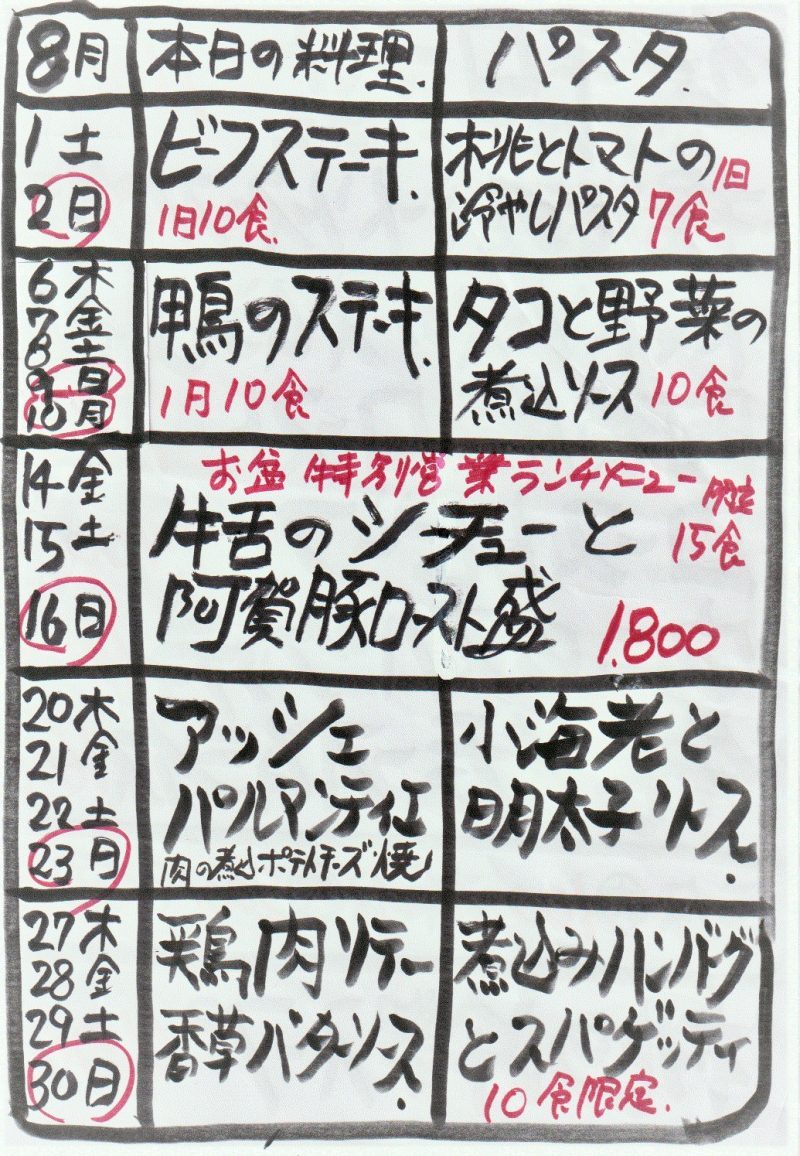 8月 本日の料理. パスタ.
1 土
2 日
ビーフステーキ.
1日10食.
桃とトマトの 1日
冷やしパスタ 7食
6 木
7 金
8 土
9 日
10 月
鴨のステーキ.
1日10食
タコと野菜の
煮込ソース 10食
14 金
15 土
16 日
お盆 特別営業ランチメニュー 限定
牛舌のシチューと 15食
阿賀豚ロースト盛 1,800
20 木
21 金
22 土
23 日
アッシェ
パルマンティエ
肉の煮込ポテトチーズ焼
小海老と
明太子ソース.
27 木
28 金
29 土
30 日
鶏肉ソテー
香草バターソース.
煮込みハンバーグ
とスパゲッティ
10食限定.